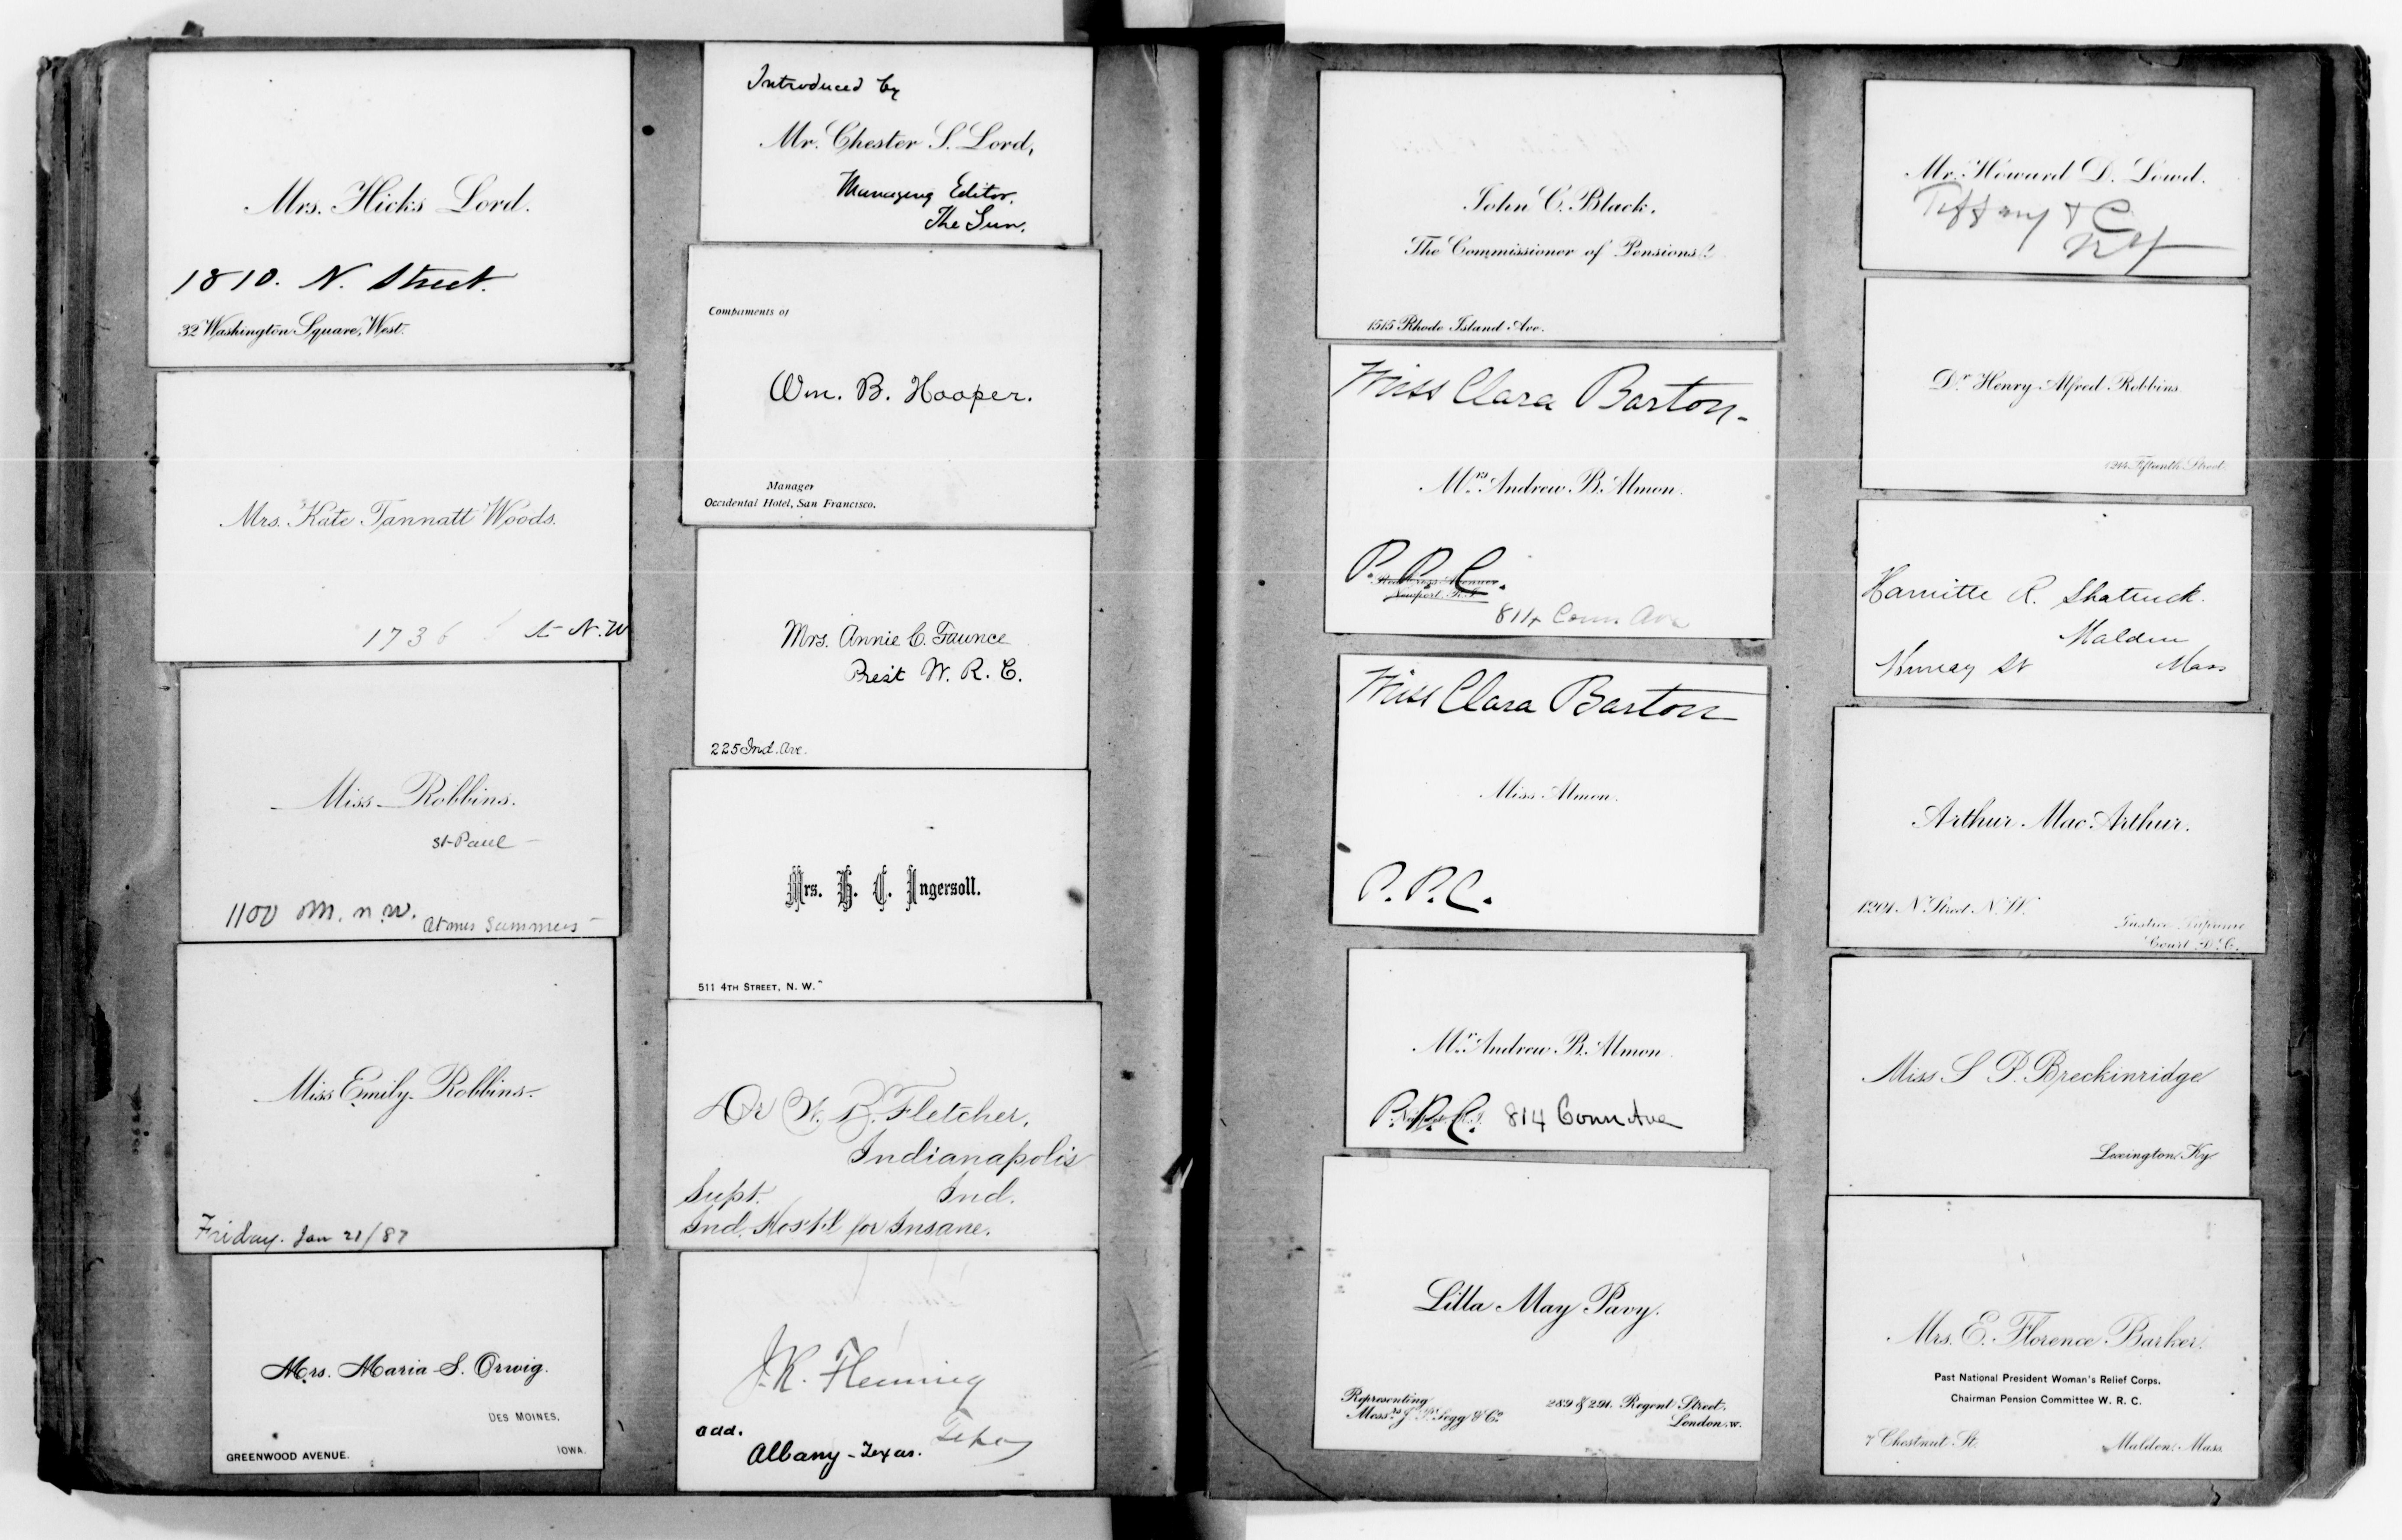 Mrs. Hicks Lord.
1810. N. Street.
32 Washington Square, West.
Mrs. Kate Tannatt Woods.
1736 St N.W
Miss Robbins.
St Paul
1100 M. n.w.
At Mrs Summers
Miss Emily Robbins.
Friday. Jan 21/87
Mrs. Maria S. Orwig.
DES MOINES,
IOWA.
GREENWOOD AVENUE.
Introduced by
Mr. Chester S. Lord,
Managing Editor,
The Sun.
Compliments of
Wm. B. Hooper.
Manager
Occidental Hotel, San Francisco.
Mrs. Annie C. Faunce
Prest W. R. C.
225 Ind. Ave.
Mrs. H. C. Ingersoll.
511 4TH STREET, N. W.
Dr W. B. Fletcher,
Indianapolis
Supt. Ind.
Ind. Hosptl for Insane.
J. K. Fleming
Texas
add.
Albany - Texas.
John C. Black.
The Commissioner of Pensions.
1515 Rhode Island Ave.
Miss Clara Barton -
Mrs. Andrew B. Almon.
P. P. C.
Newport, R.I.
814 Conn Ave
Miss Clara Barton
Miss Almon.
P. P. C.
Mr. Andrew B. Almon.
P. P. C. 814 Conn Ave
Lilla May Pavy.
Representing
Messrs J. &Co.
289 & 291. Regent Street.
London. W.
Mr. Howard D. Lowd.
Tiffany & Co
NY
Dr. Henry Alfred Robbins.
Fifteenth Street.
Harriette R. Shattuck.
Malden
St Mass
Arthur Mac Arthur.
1201 N Street N.W.
Justice Supreme
Court D.C.
Miss S P. Breckinridge
Lexington Ky
Mrs. E. Florence Barker.
Past National President Woman's Relief Corps.
Chairman Pension Committee W. R. C.
7 Chestnut St.
Malden, Mass.